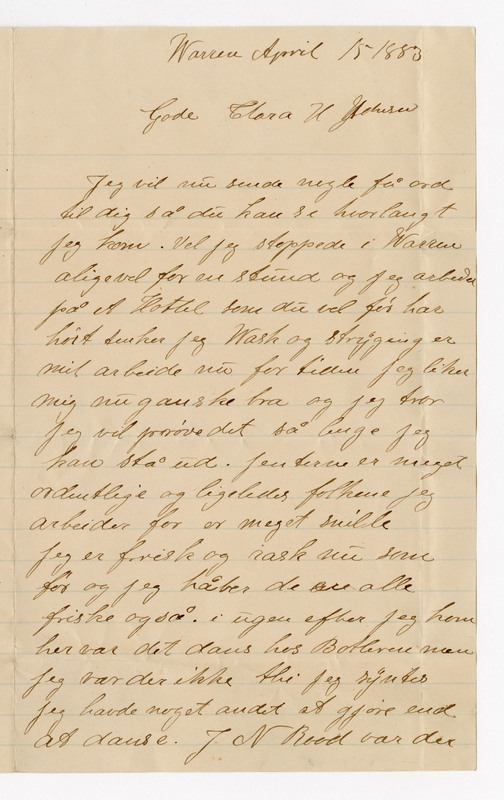 Warren April 15 1883
Gode Clara H Johnsen
Jeg vil nu sende nogle få ord
til dig så du kan se hvorlangt
jeg kom. Vel jeg stoppede i Warren
aligevel for en stund og jeg arbeider
på et Hottel som du vel før har
hört tenker jeg Wask og strÿging er
mit arbeide nu for tiden jeg liker
mig nu ganske bra og jeg tror
jeg vil prøve det så lenge jeg
kan stå ud. jenterne er meget
ordentlige og ligeledes folkene jeg
arbeider for er meget snille
jeg er frisk og rask nu som
før og jeg håber de ere alle
friske også. i ugen efter jeg kom
her var det dans hos men
jeg var der ikke thi jeg sÿntes
jeg havde noget andet at gjøre end
at danse. J. N Rood var der